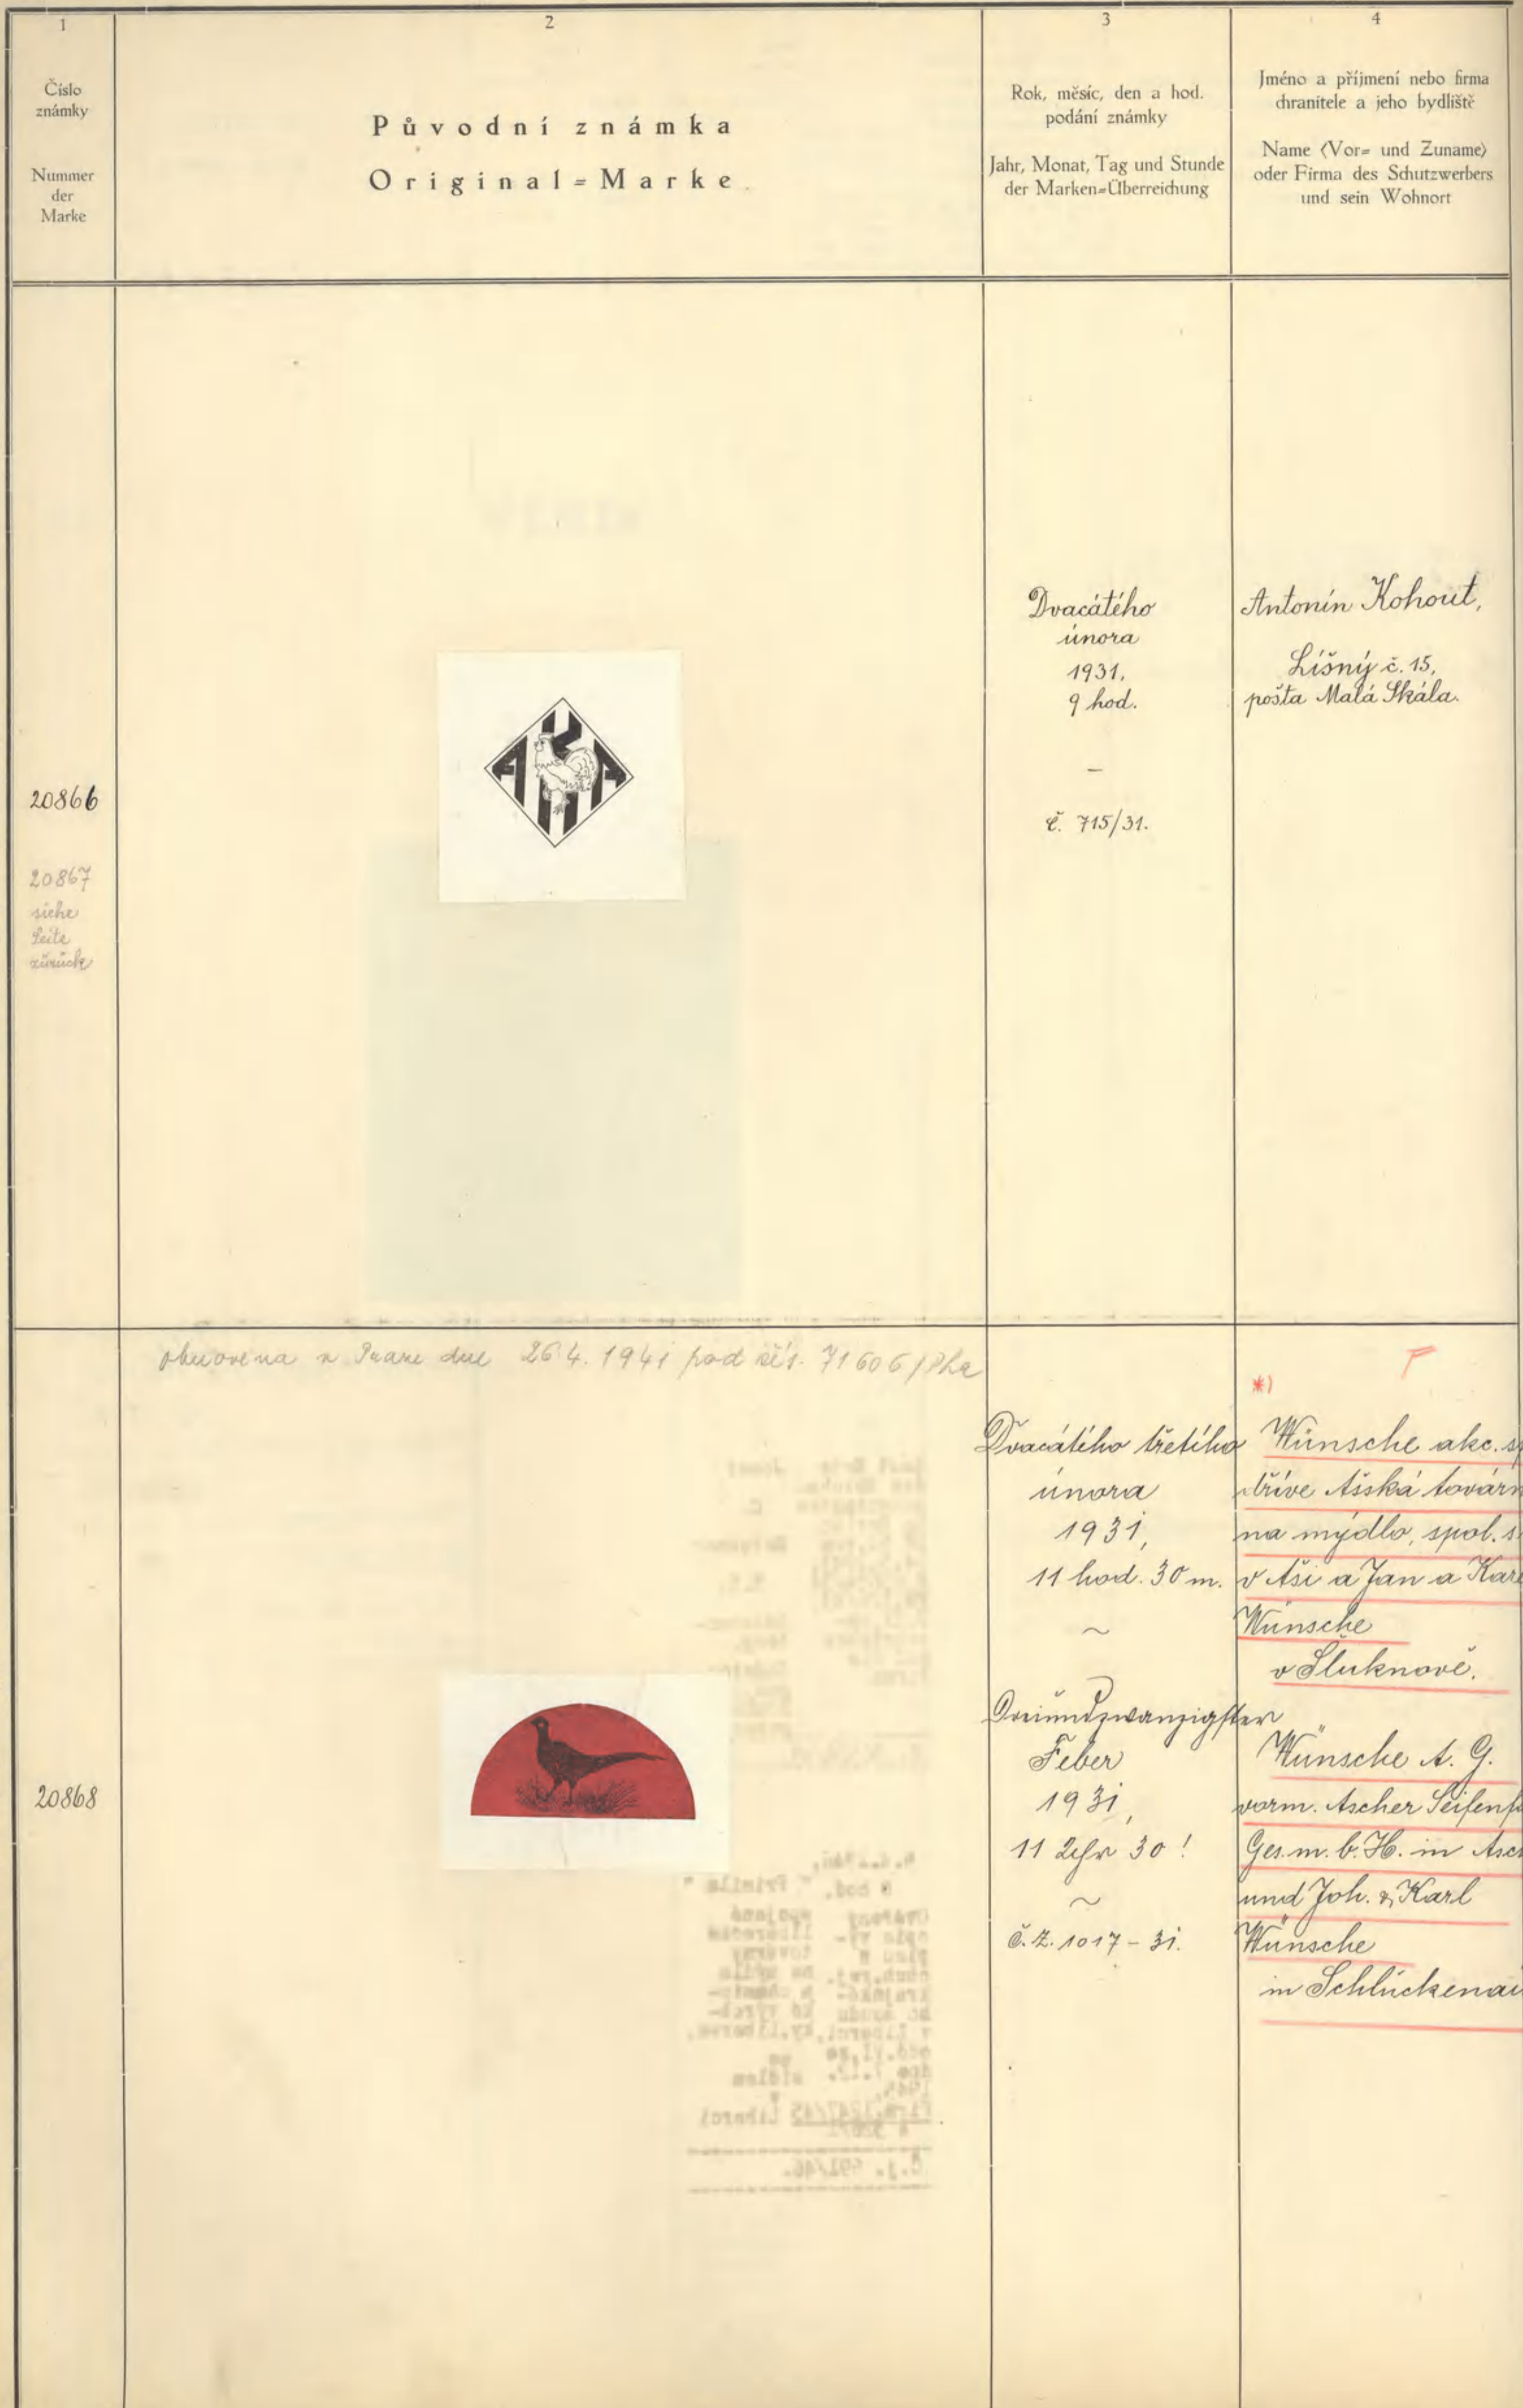 1
2
3
4
Číslo
známky
Nummer
der
Marke
Původní známka
Original=Marke
Rok, měsíc, den a hod.
podání známky
Jahr, Monat, Tag und Stunde
der Marken=Überreichung
Jméno a příjmení nebo firma
chranitele a jeho bydliště
Name (Vor= und Zuname)
oder Firma des Schutzwerbers
und sein Wohnort
20866
20867
siehe
Seite
zurück
AKA
Dvacátého
února
1931,
9 hod.
—
č. 715/31.
Antonín Kohout,
Líšný č. 15,
pošta Malá Skála.
obnovena v Praze dne 26 4. 1941 pod čís. 71606/Pha
20868
Dvacátého třetího
února
1931,
11 hod. 30 m.
~
Dreiundzwanzigster
Feber
1931,
11 Uhr 30!
~
č. Z. 1017-31.
*)
Wünsche akc. s
dříve Ašská továrn
na mýdlo, spol. s
v Aši a Jan a Kar
Wünsche
v Šluknově.
Wünsche A. G.
vorm. Ascher Seifenf
Ges. m. b. H. in Asc
und Joh. & Karl
Wünsche
in Schluckenau